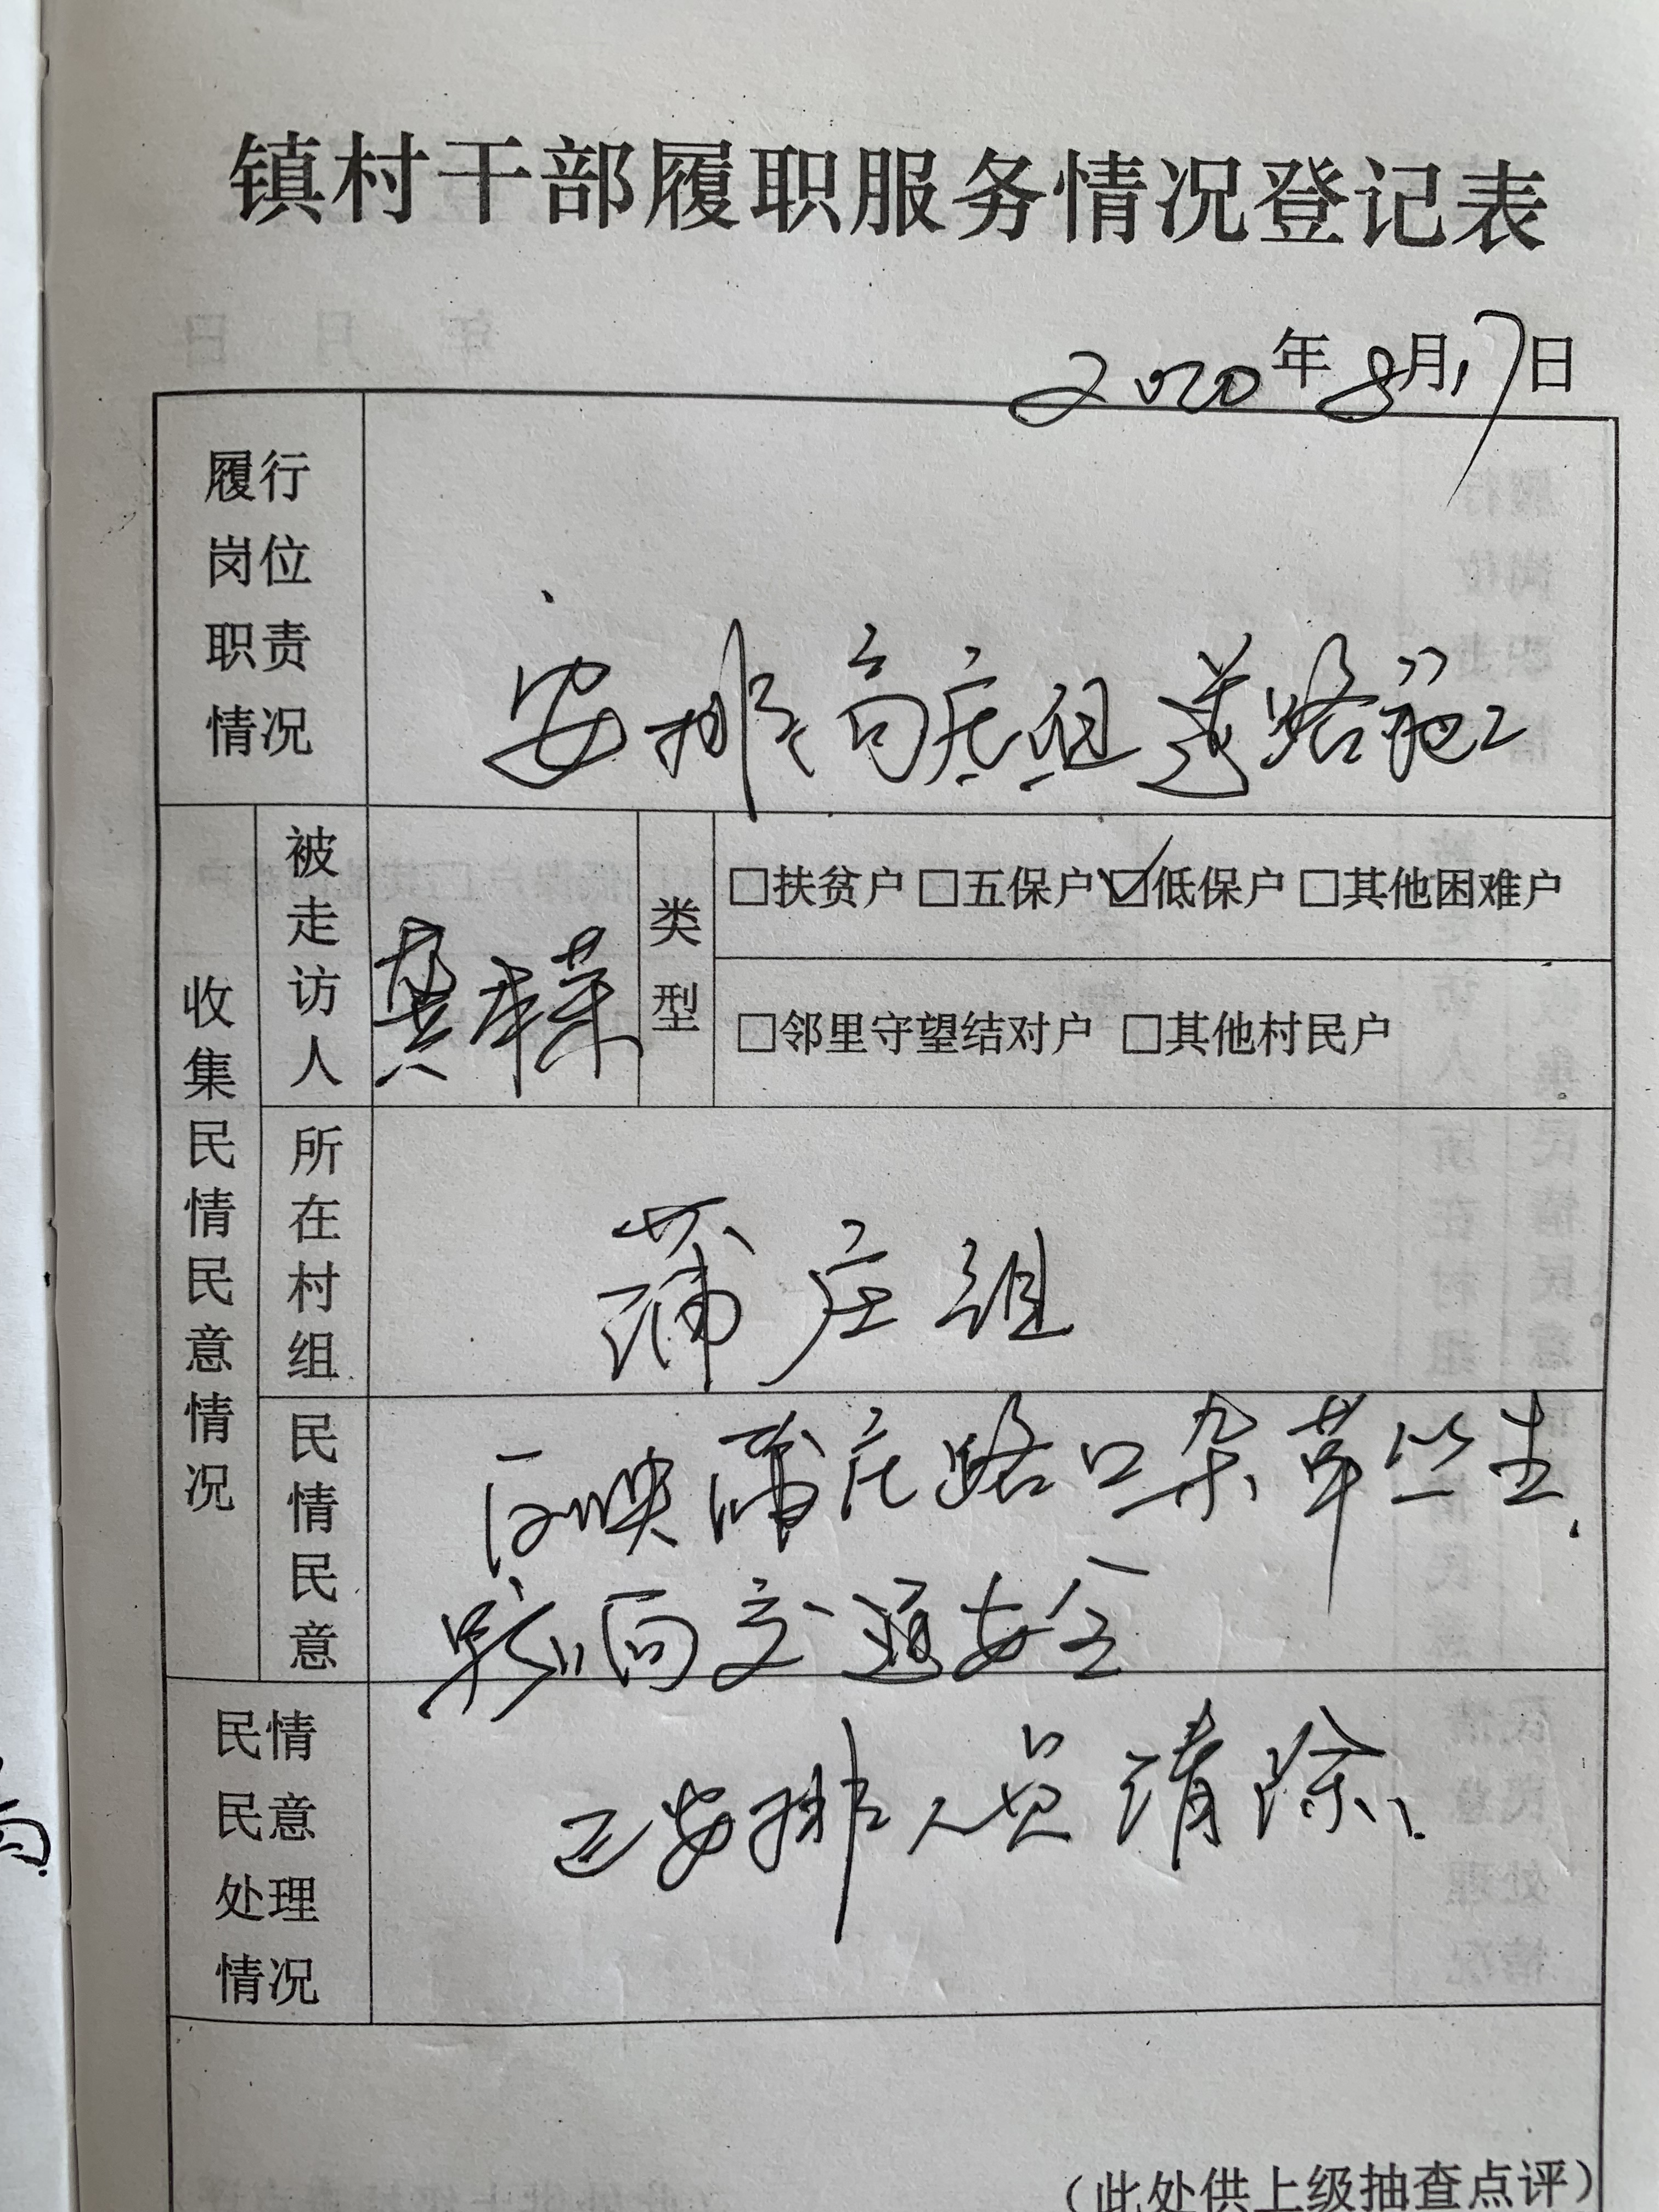 镇村干部履职服务情况登记表
2020年8月17日
履行
岗位
职责
情况
安排高庄组道路施工
收集民情民意情况
被走访人
类型
□扶贫户 □五保户 ☑低保户 □其他困难户
□邻里守望结对户 □其他村民户
所在村组
蒲庄组
民情民意
反映蒲庄路口杂草丛生,
影响交通安全
民情
民意
处理
情况
已安排人员清除.
(此处供上级抽查点评)